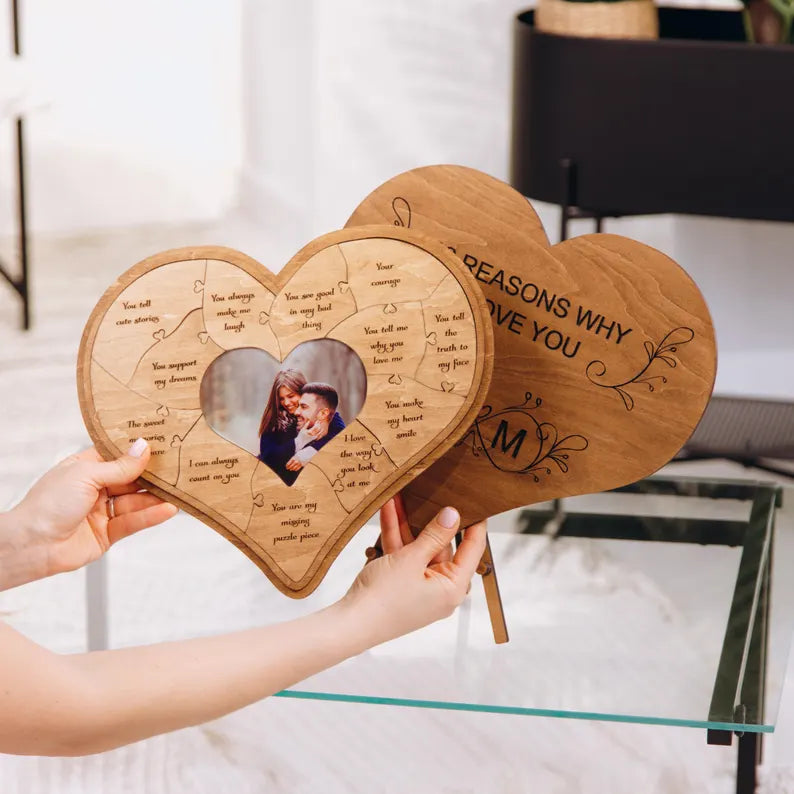 You tell
cute stories
You always
make me
laugh
You see good
in any bad
thing
Your
courage
You support
my dreams
You tell me
why you
love me
You tell
the
truth to
my face
The sweet
You make
my heart
smile
I can always
count on you
I love
the way
you look
at me
You are my
missing
puzzle piece
REASONS WHY
YOU
M